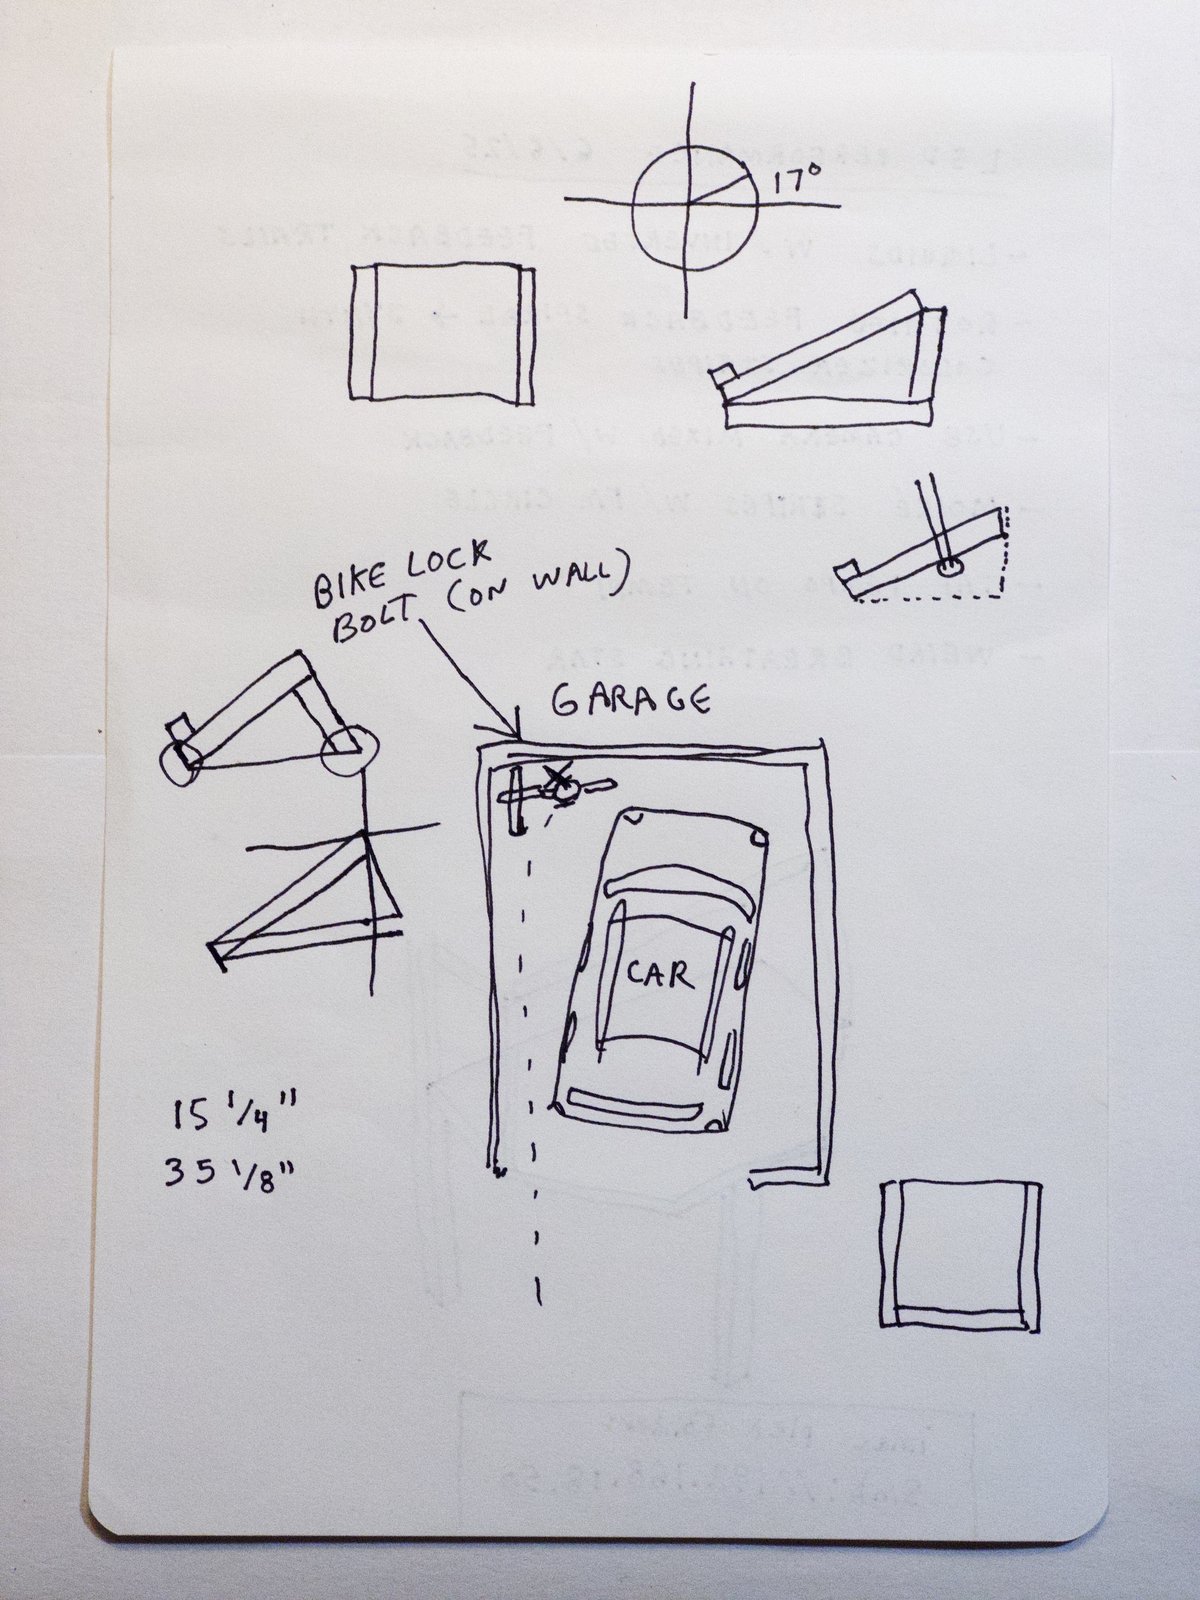 17°
BIKE LOCK
BOLT (ON WALL)
GARAGE
CAR
15 1/4"
35 1/8"